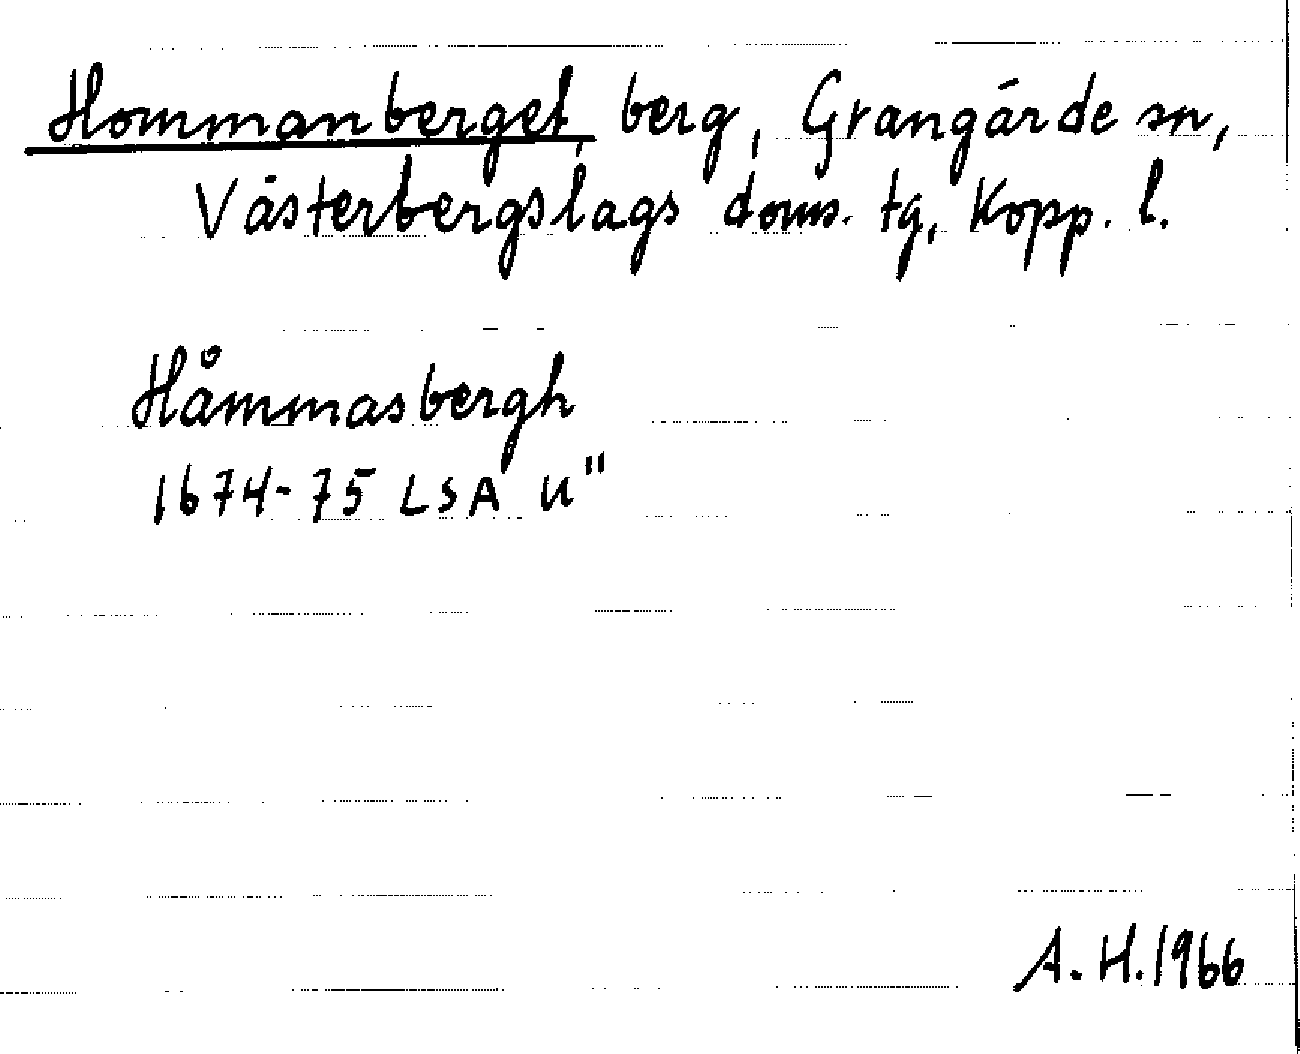 Hommanberget, berg, Grangärde sn,
Västerbergslags doms. tg, Kopp. l.
Håmmasbergh
1674-75 LSA U"
A. H. 1966